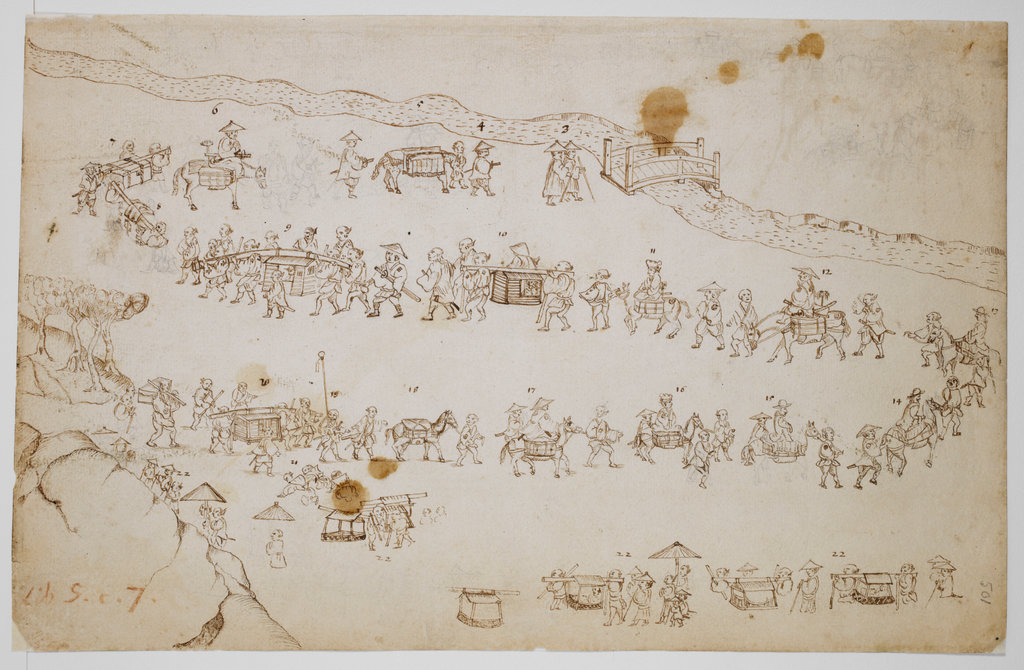 6 5 4 3
7
8
9 10 11 12
13
20 19 18 17 16 15 14
22
22
22 22
Lib S. c. 7.
105